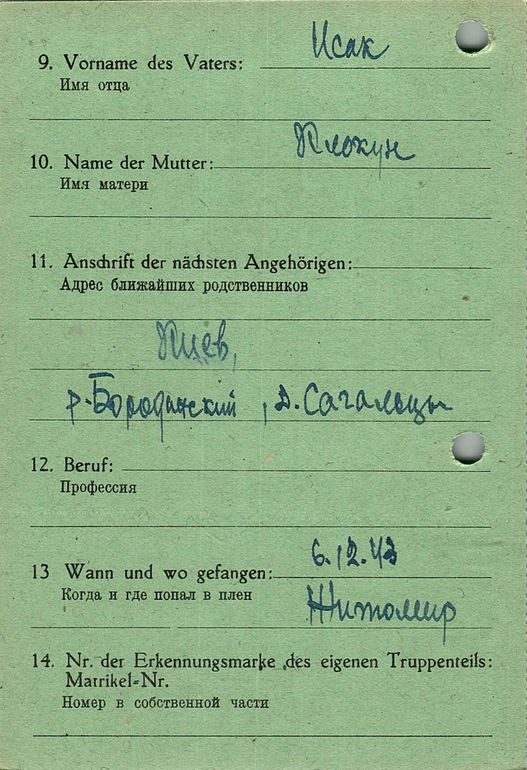 9. Vorname des Vaters: Исак
Имя отца
10. Name der Mutter: Клокун
Имя матери
11. Anschrift der nächsten Angehörigen:
Адрес ближайших родственников
Киев,
р-Бородянский, д. Сагальцы
12. Beruf:
Профессия
13 Wann und wo gefangen: 6.12.43
Когда и где попал в плен Житомир
14. Nr. der Erkennungsmarke des eigenen Truppenteils:
Matrikel-Nr.
Номер в собственной части